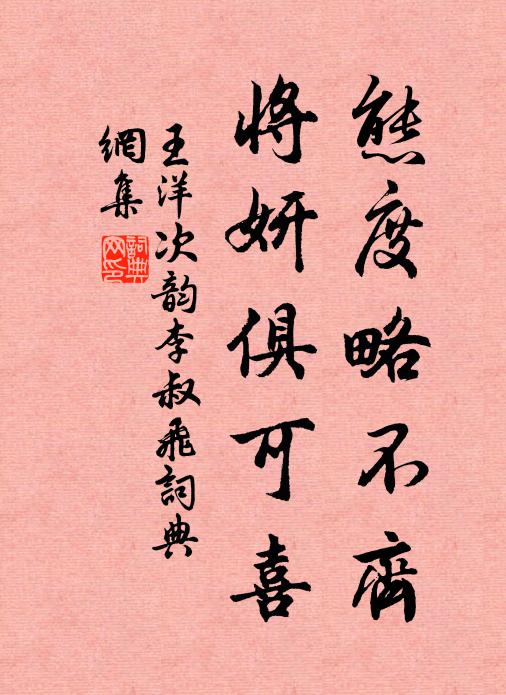 態度略不齊
將妍俱可喜
王洋次韵李叔飛詞典
網集
詞典
网印